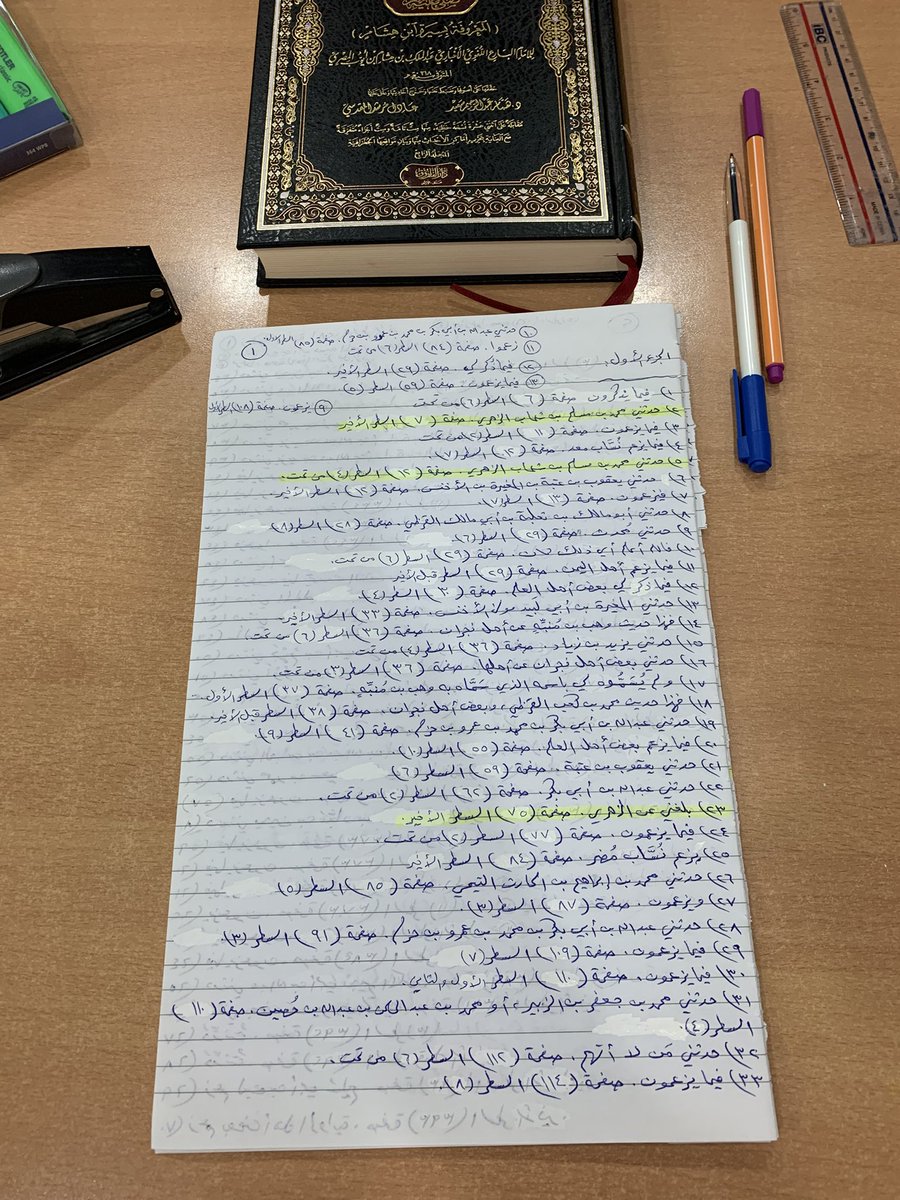 (المعروفة بسيرة ابن هشام)
للإمام البارع اللغوي الأخباري عبد الملك بن هشام بن أيوب البصري
المتوفى ٢١٨ هـ
المجلد الرابع
IBC
١
١٠) حدثني عبد الله بن أبي بكر بن محمد بن عمرو بن حزم. صفحة (٨٥) السطر الأول
١١) زعموا. صفحة (٨٤) السطر (٦) من تحت
الجزء الأول:
١٢) فيما ذكر لي. صفحة (٢٩) السطر الأخير.
١٣) فيما يزعمون. صفحة (٥٩) السطر (٥)
٩) يزعمون. صفحة (١٠٨) السطر الأول
١) فيما يذكرون. صفحة (٦) السطر (٦) من تحت
٢) حدثني محمد بن مسلم بن شهاب الزهري. صفحة (٧) السطر الأخير
٣) فيما يزعمون. صفحة (١١) السطر (٢) من تحت
٤) فيما يزعم نُسَّاب معد. صفحة (١٢) السطر (٧).
٥) حدثني محمد بن مسلم بن شهاب الزهري. صفحة (١٢) السطر (٤) من تحت.
٦) حدثني يعقوب بن عتبة بن المغيرة بن الأخنس. صفحة (١٢) السطر الأخير.
٧) فيزعمون. صفحة (١٣) السطر (٧)
٨) حدثني أبو مالك بن ثعلبة بن أبي مالك القرظي. صفحة (٢٨) السطر (٨)
٩) حدثني مُحدث. صفحة (٢٩) السطر (٦).
١٠) فالله أعلم أي ذلك كان. صفحة (٢٩) السطر (٦) من تحت.
١١) فيما يزعم أهل اليمن. صفحة (٢٩) السطر قبل الأخير
١٢) فيما ذكر لي بعض أهل العلم. صفحة (٣٠) السطر (٤).
١٣) حدثني المغيرة بن أبي لبيد مولى الأخنس. صفحة (٣٣) السطر الأخير
١٤) فهذا حديث وهب بن مُنبِّه عن أهل نجران. صفحة (٣٦) السطر (٦) من تحت
١٥) حدثني يزيد بن زياد. صفحة (٣٦) السطر (٤) من تحت
١٦) حدثني بعض أهل نجران عن أهلها. صفحة (٣٦) السطر (٣) من تحت.
١٧) ولم يُسَمُّوه لي باسمه الذي سَمَّاه به وهب بن مُنبِّه. صفحة (٣٧) السطر الأول.
١٨) فهذا حديث محمد بن كعب القرظي، وبعض أهل نجران. صفحة (٣٨) السطر قبل الأخير.
١٩) حدثني عبد الله بن أبي بكر بن محمد بن عمرو بن حزم. صفحة (٤١) السطر (٩).
٢٠) فيما يزعم بعض أهل العلم. صفحة (٥٥) السطر (١٠).
٢١) حدثني يعقوب بن عتبة. صفحة (٥٩) السطر (٦)
٢٢) حدثني عبد الله بن أبي بكر. صفحة (٦٢) السطر (٢) من تحت.
٢٣) بلغني عن الزهري. صفحة (٧٥) السطر الأخير.
٢٤) فيما يزعمون. صفحة (٧٧) السطر (٢) من تحت.
٢٥) يزعم نُسَّاب مُضر. صفحة (٨٤) السطر الأخير
٢٦) حدثني محمد بن إبراهيم بن الحارث التيمي. صفحة (٨٥) السطر (٥)
٢٧) ويزعمون. صفحة (٨٧) السطر (٣).
٢٨) حدثني عبد الله بن أبي بكر بن محمد بن عمرو بن حزم. صفحة (٩١) السطر (٣).
٢٩) فيما يزعمون. صفحة (١٠٩) السطر (٧)
٣٠) فيما يزعمون. صفحة (١١٠) السطر الأول والثاني.
٣١) حدثني محمد بن جعفر بن الزبير، أو محمد بن عبد الرحمن بن عبد الله بن حُصين. صفحة (١١٠)
السطر (٤).
٣٢) حدثني مَن لا أتهم. صفحة (١١٢) السطر (٦) من تحت.
٣٣) فيما يزعمون. صفحة (١١٤) السطر (٨).